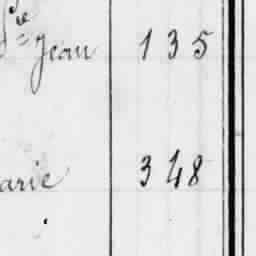 Ste Jean 135
arie 348